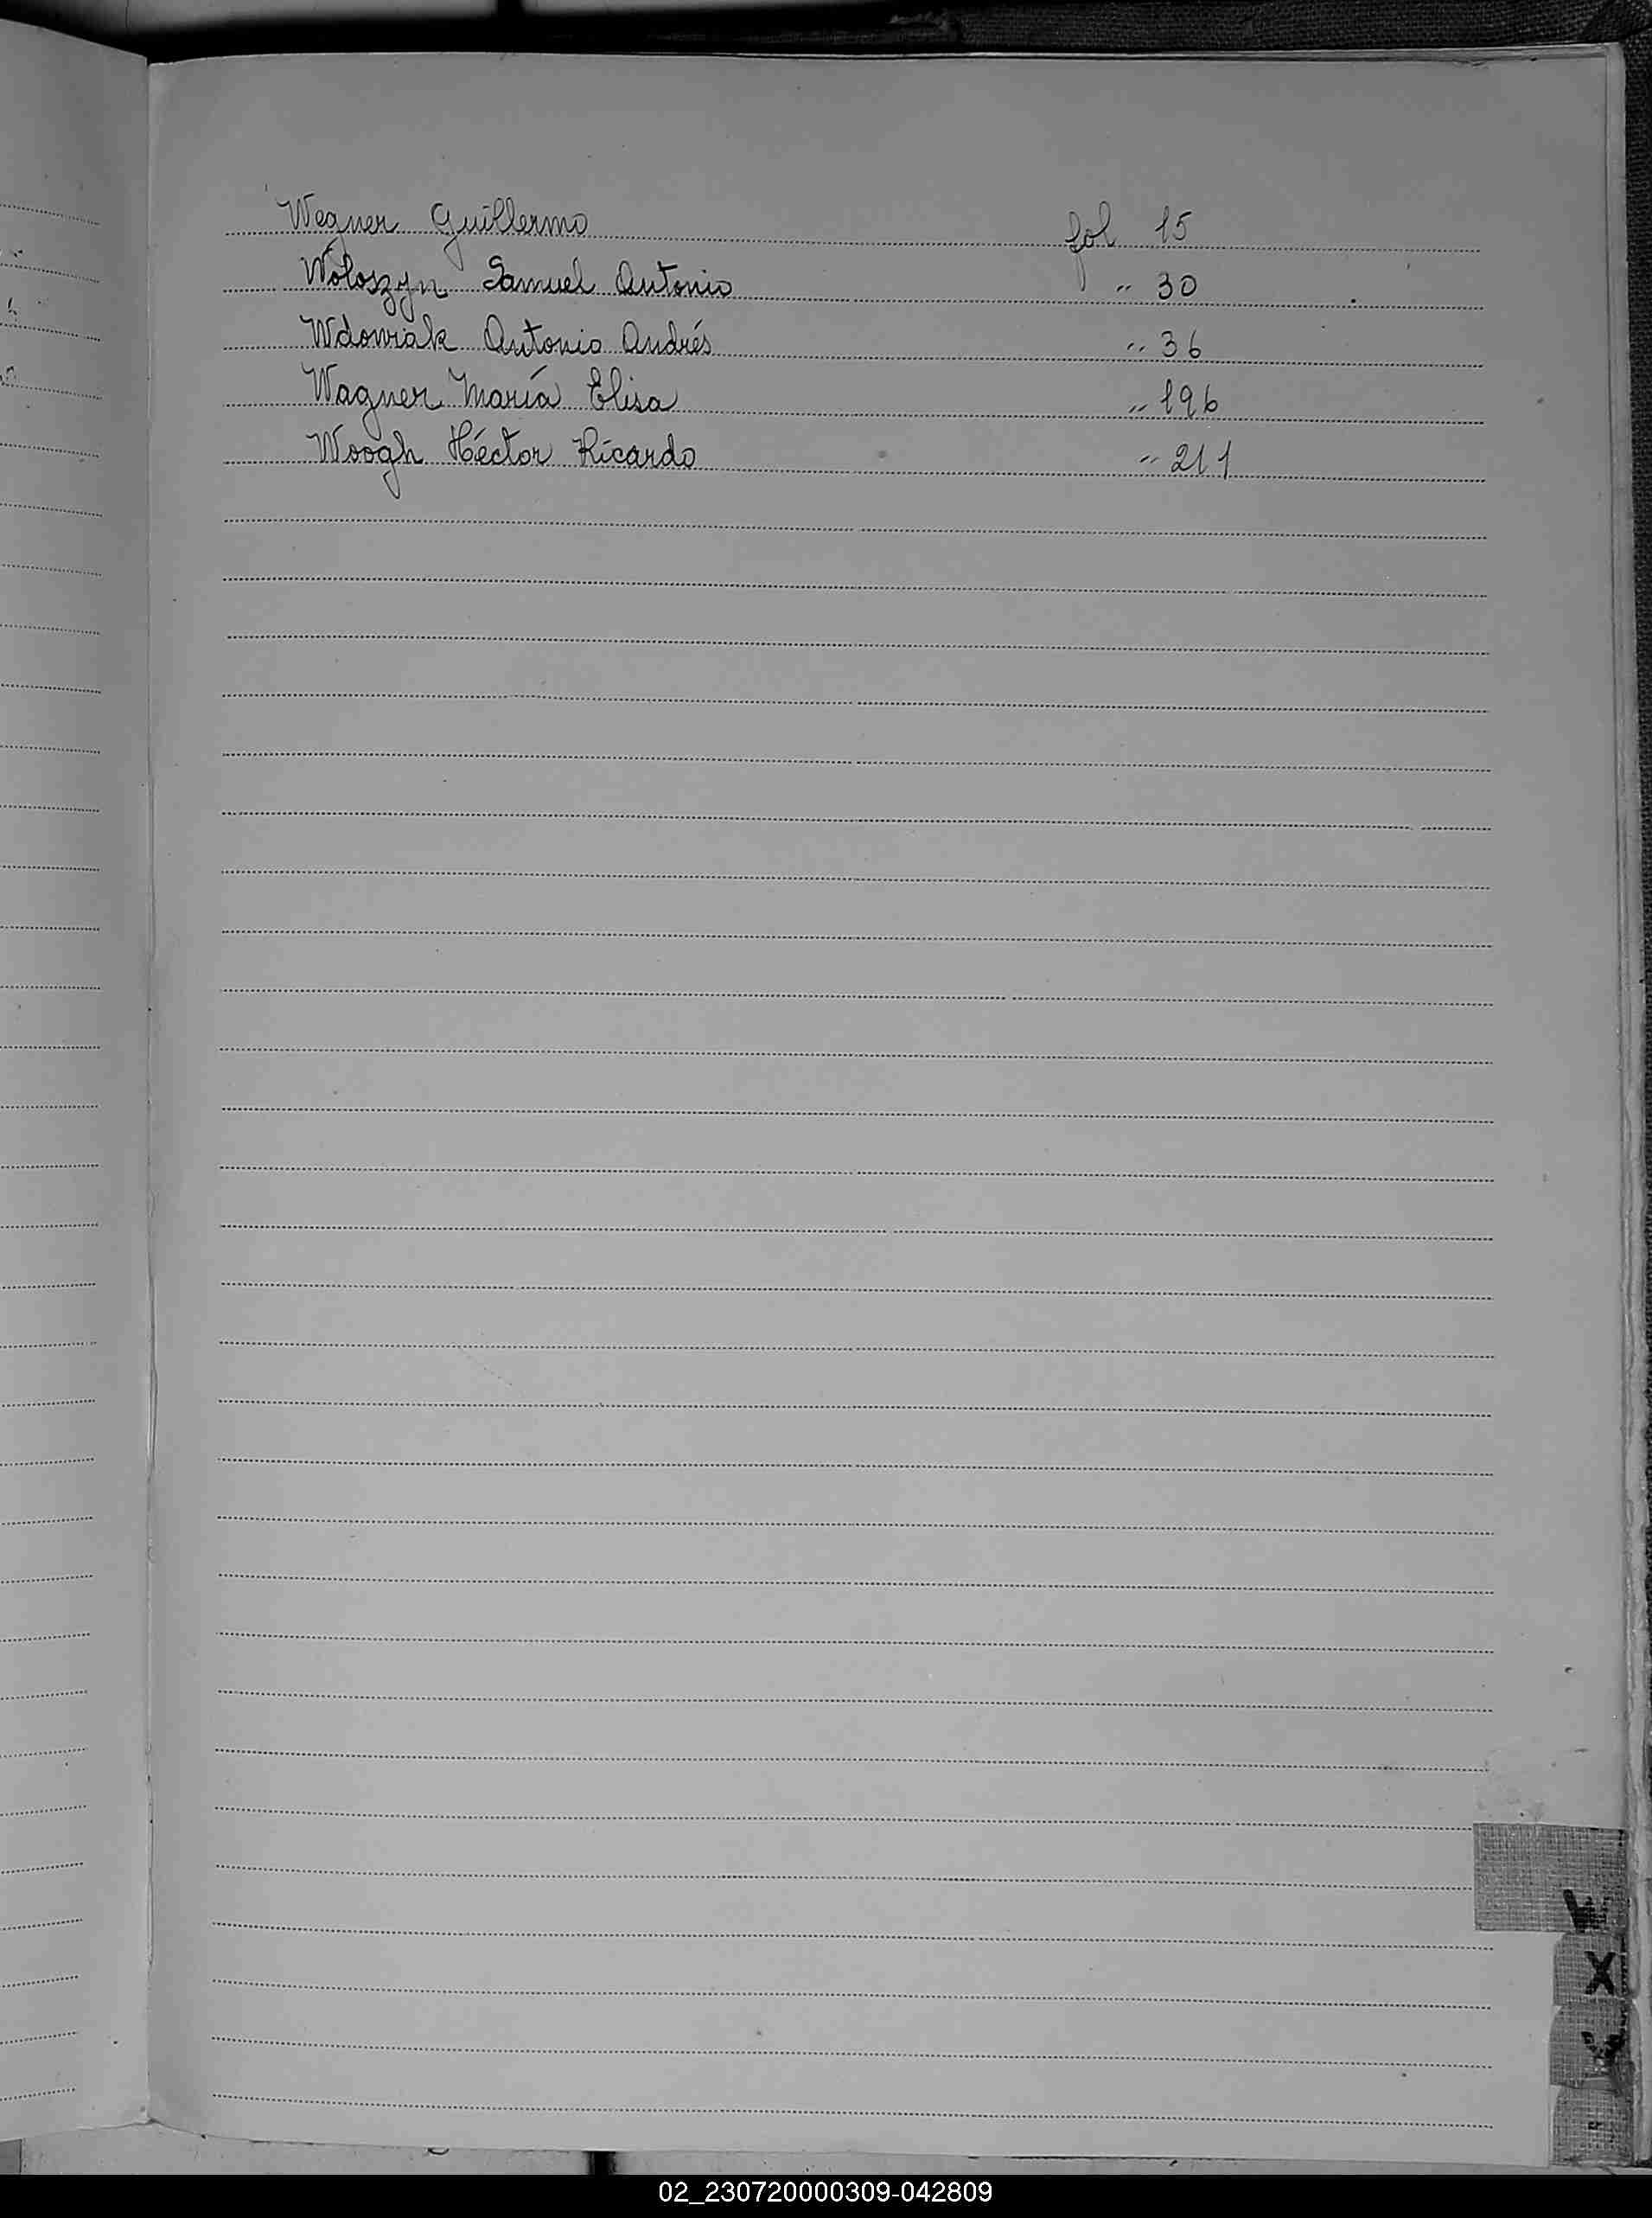 Wegner Guillermo fol 15
Woloszyn Samuel Antonio " 30
Wdowiak Antonio Andrés " 36
Wagner María Elisa " 196
Woogh Héctor Ricardo " 211
W
X
02_230720000309-042809